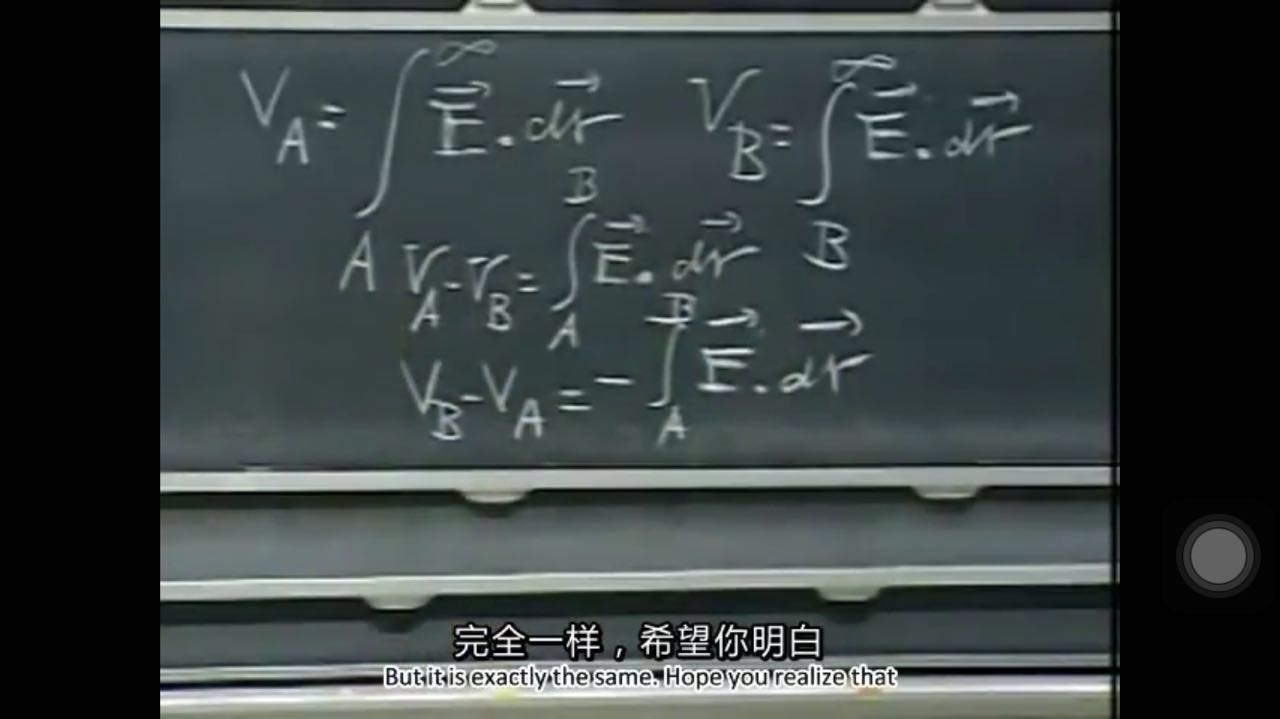 V_A = ∫_A^∞ E⃗ · dr⃗ V_B = ∫_B^∞ E⃗ · dr⃗
V_A - V_B = ∫_A^B E⃗ · dr⃗
V_B - V_A = - ∫_A^B E⃗ · dr⃗
完全一样，希望你明白
But it is exactly the same. Hope you realize that